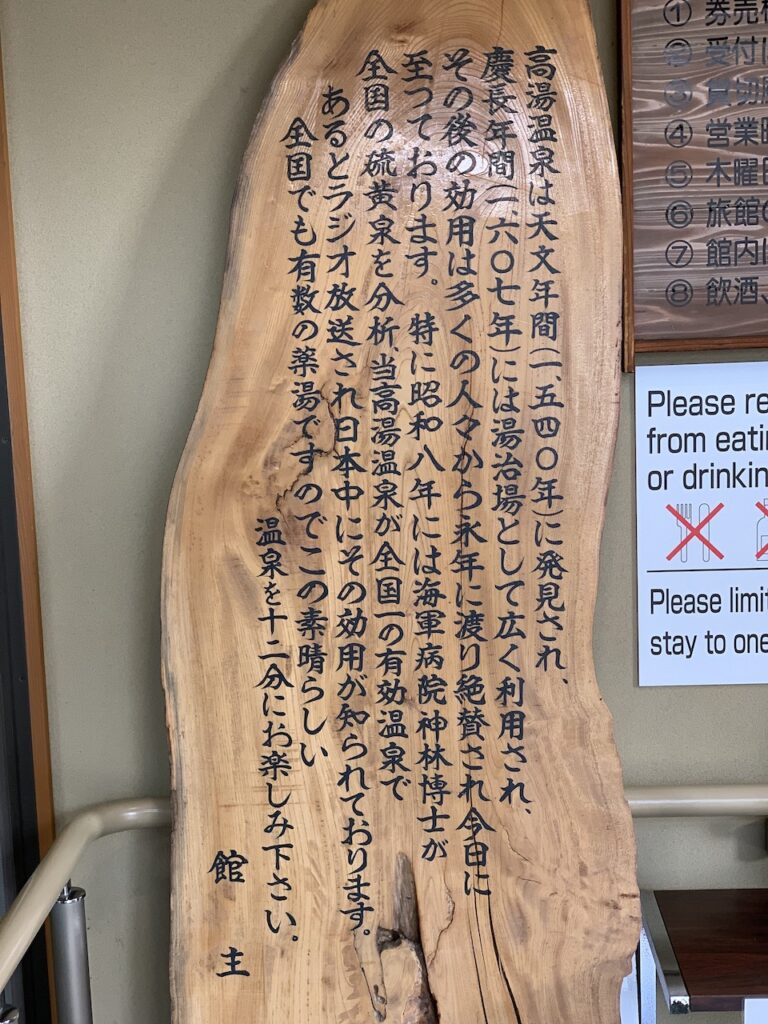 高湯温泉は天文年間(一、五四〇年)に発見され、
慶長年間(一、六〇七年)には湯治場として広く利用され、
その後の効用は多くの人々から永年に渡り絶賛され今日に
至つております。 特に昭和八年には海軍病院神林博士が
全国の硫黄泉を分析、当高湯温泉が全国一の有効温泉で
あるとラジオ放送され日本中にその効用が知られております。
全国でも有数の薬湯ですのでこの素晴らしい
温泉を十二分にお楽しみ下さい。
館 主
① 券売
② 受付
③ 貸切
④ 営業
⑤ 木曜日
⑥ 旅館
⑦ 館内
⑧ 飲酒、
Please re
from eatin
or drinkin
Please limit
stay to one